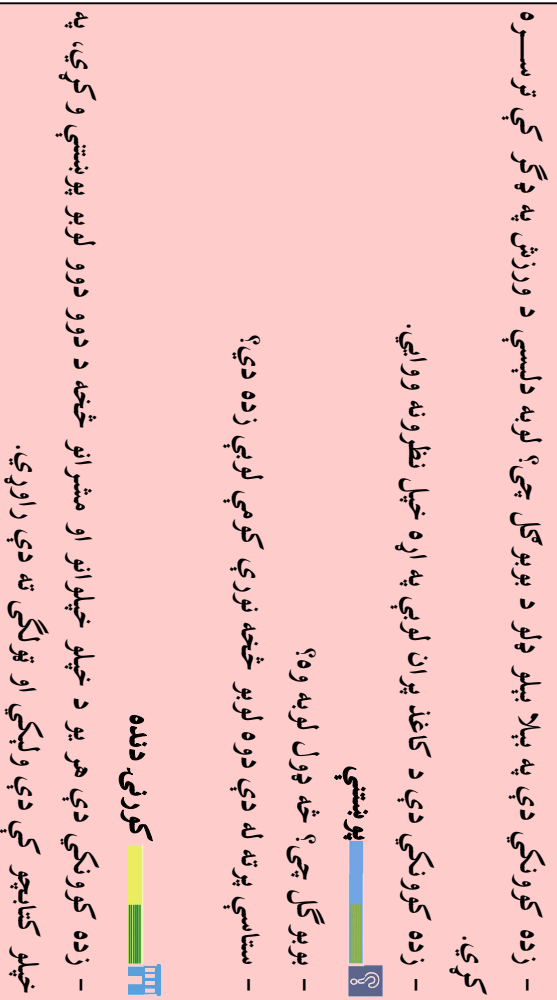 - زده کوونکي دې په بېلا بېلو ډلو د بوبو ګل چې؟ لوبه دلیسې د ورزش په ډګر کې ترســره
کړي.
- زده کوونکي دې د کاغذ پران لوبې په اړه خپل نظرونه ووايي.
پوښتنې
- بوبو ګل چې؟ څه ډول لوبه وه؟
- ستاسې پرته له دې دوه لوبو څخه نورې کومې لوبې زده دي؟
کورنۍ دنده
- زده کوونکي دې هر یو د خپلو خپلوانو او مشرانو څخه د دوو دوو لوبو پوښتنې و کړي، په
خپلو کتابچو کې دې ولیکي او ټولګي ته دې راوړي.